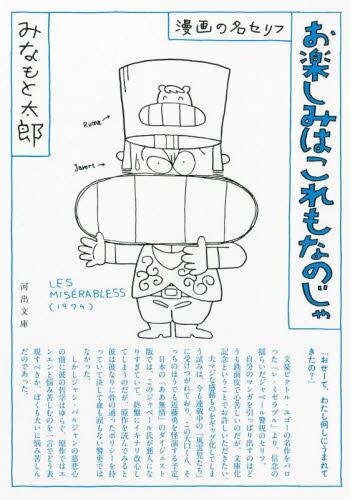 漫画の名セリフ
お楽しみはこれもなのじゃ
みなもと太郎
Ruma→
Javert→
LES
MISÉRABLESS
(1974)
河出文庫
「おせーて、わたし何しにうまれて
きたの？」
文豪ビクトル・ユゴーの名作をパロ
った「レ・ミゼラブル」より、信念の
揺らいだジャベール警視のセリフ。
自分のマンガを引っぱり出すのはど
うも鉄面皮で心苦しいのだが、文庫化
記念ということでお許しいただきたい。
大マジな感動ものをギャグ化してしま
う試みは、今も連載中の「風雲児たち」
に受けつがれており、この大口くん、そ
っちのほうでも近藤勇を怪演する予定。
日本の「ああ無情」のダイジェスト
版では、このジャベール氏が悪人にな
りすぎていて、終盤にイキナリ改心し
てしまうのだが、原作を読んでみると
彼は彼なりに骨の通ったポリシーを持
っていて決して
なかった。
しかしジャン・バルジャンの慈悲心
の前に彼の哲学はゆらぐ。原作ではエ
ンエンと悩み苦しむのを一言でどう表
現すべきか、ぼくも大いに悩み苦しん
だのであった。